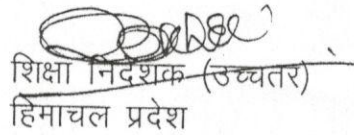 शिक्षा निदेशक (उच्चतर)
हिमाचल प्रदेश